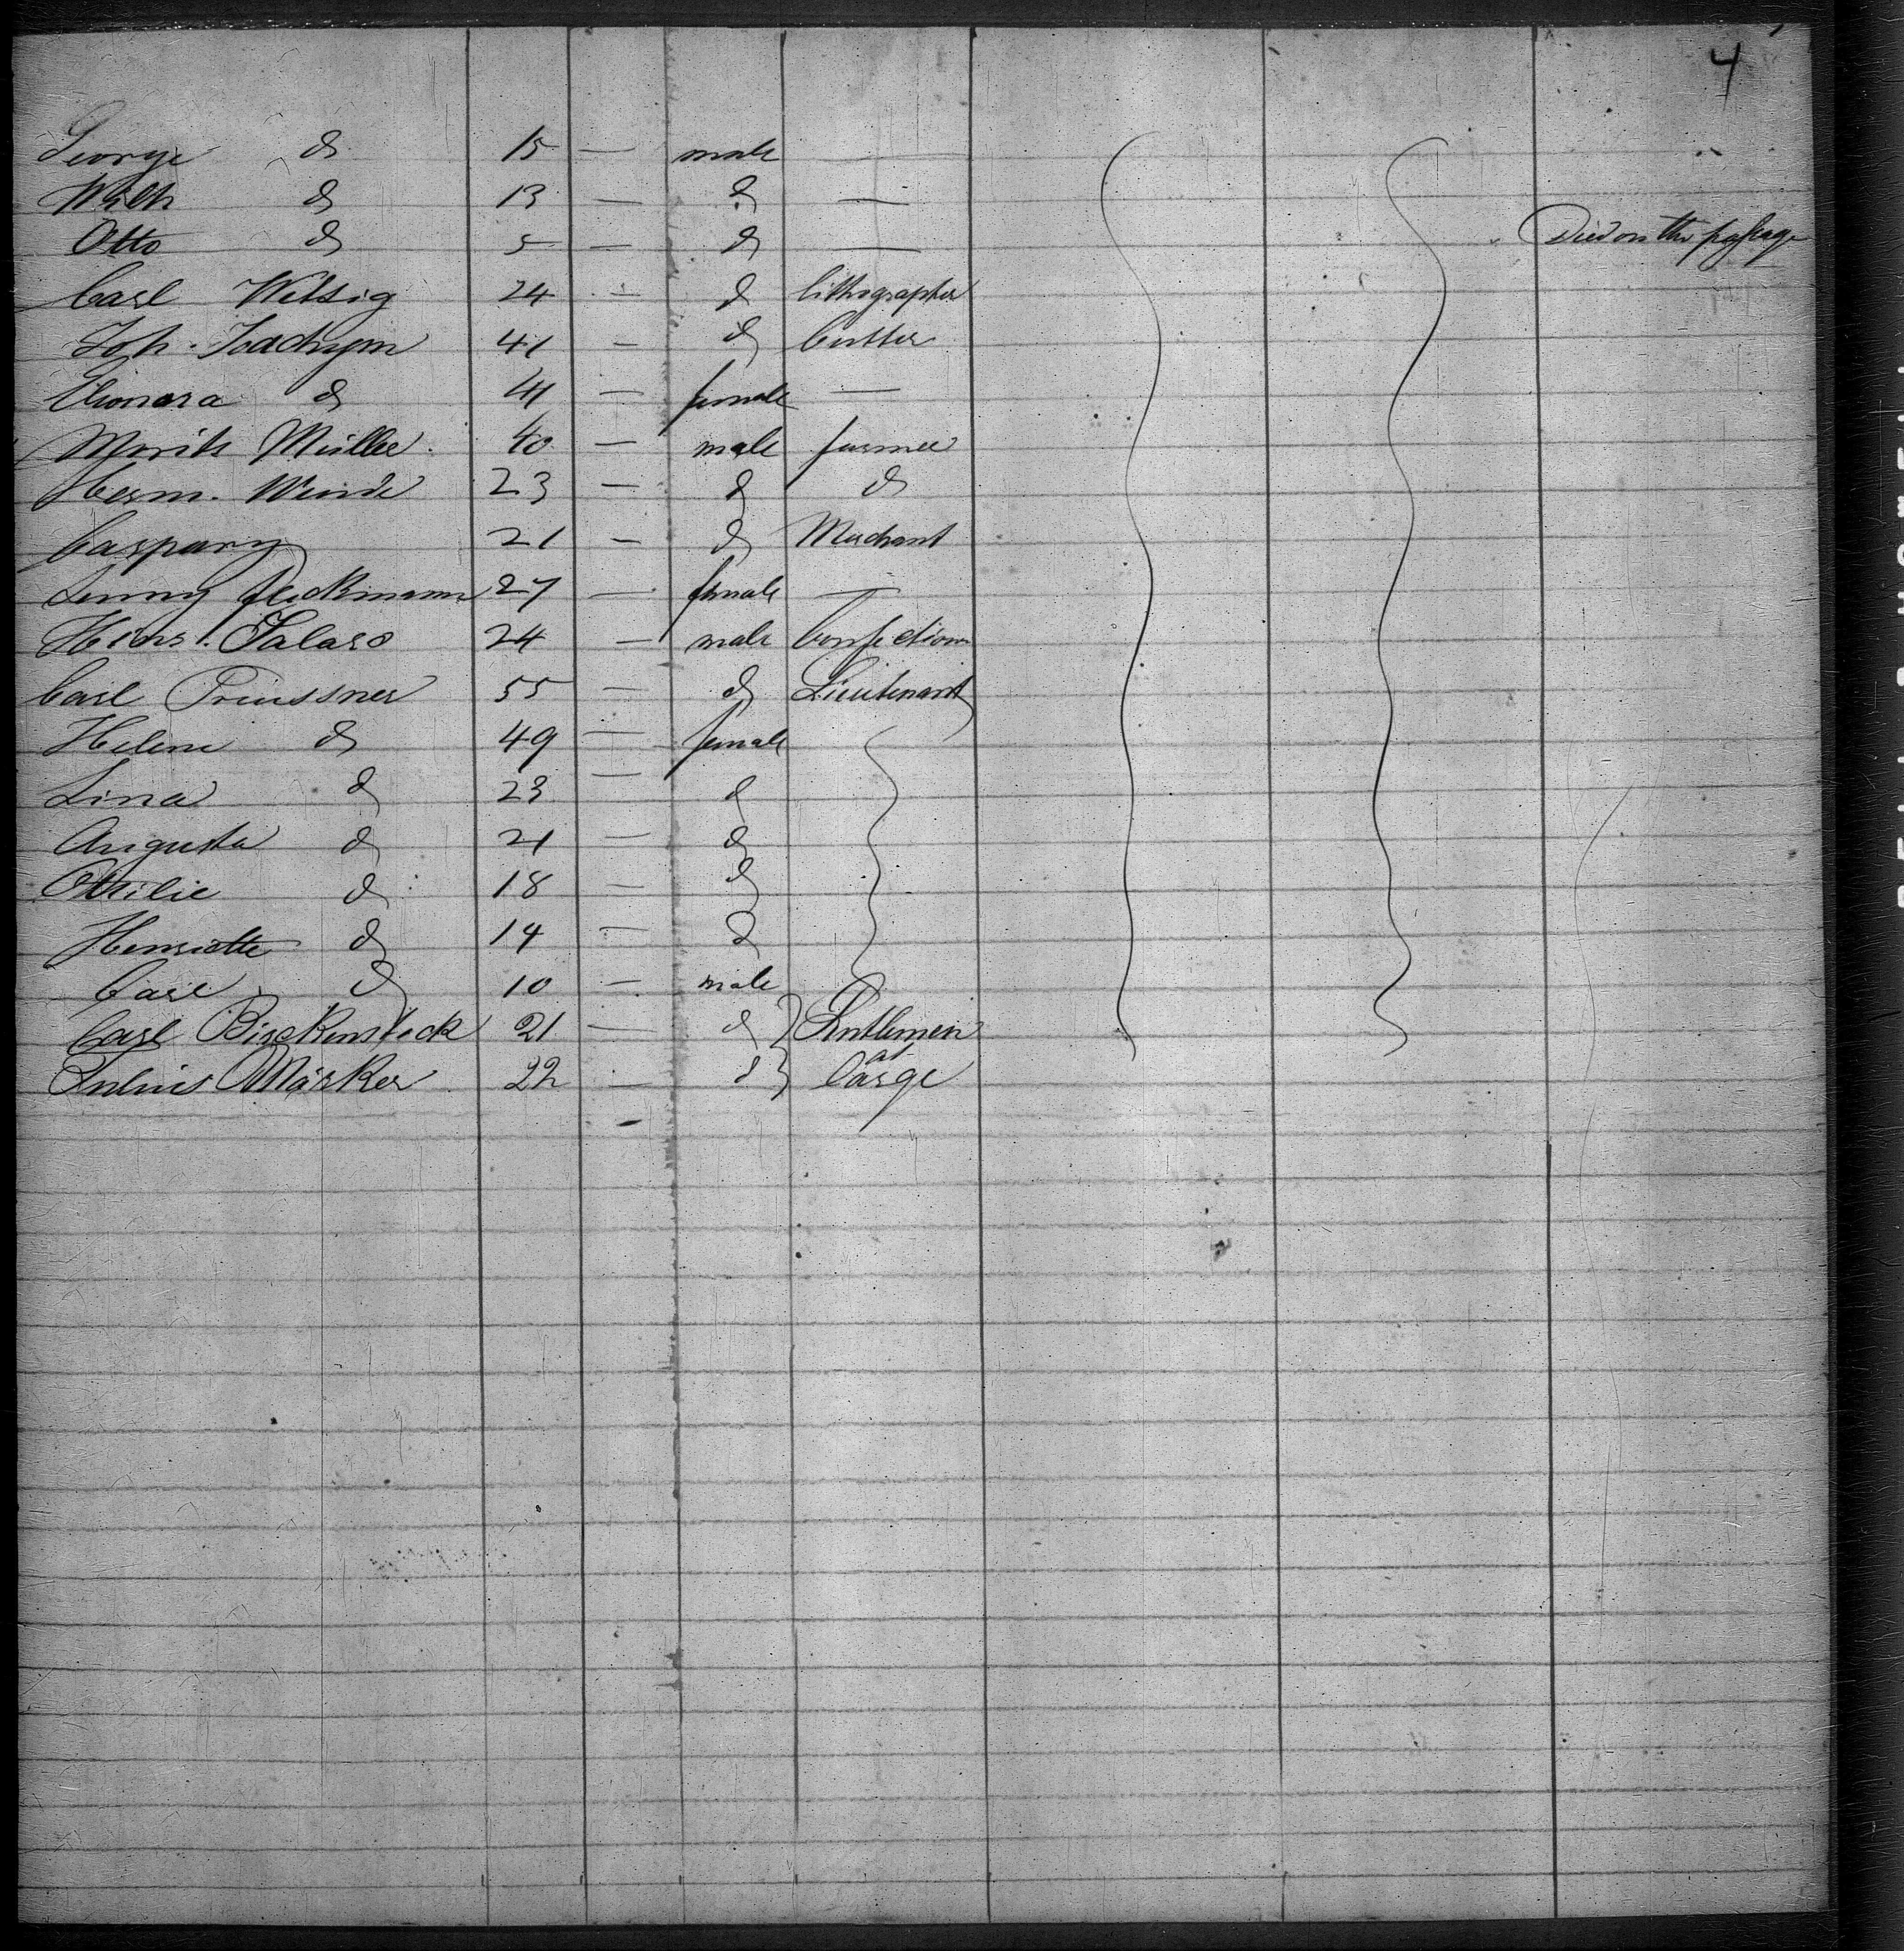 4
George do 15 — male —
Wilh do 13 — do —
Otto do 5 — do — Died on the passage
Carl Wittig 24 — do lithographer
Joh. Joachym 41 — do Cutter
Eleonora do 41 — female —
Moritz Müller 40 — male farmer
Herm. Wunde 23 — do do
Caspary 21 — do Merchant
Jenny 27 — female —
Heinr. Salaro 24 — male Confectioner
Carl Preussner 55 — do Lieutenant
Helene do 49 — female
Lina do 23 — do
Augusta do 21 — do
Ottilie do 18 — do
Henriette do 14 — do
Carl do 10 — male
Carl Birckenstock 21 — do } Gentlemen
at
Julius Märker 22 — do } large